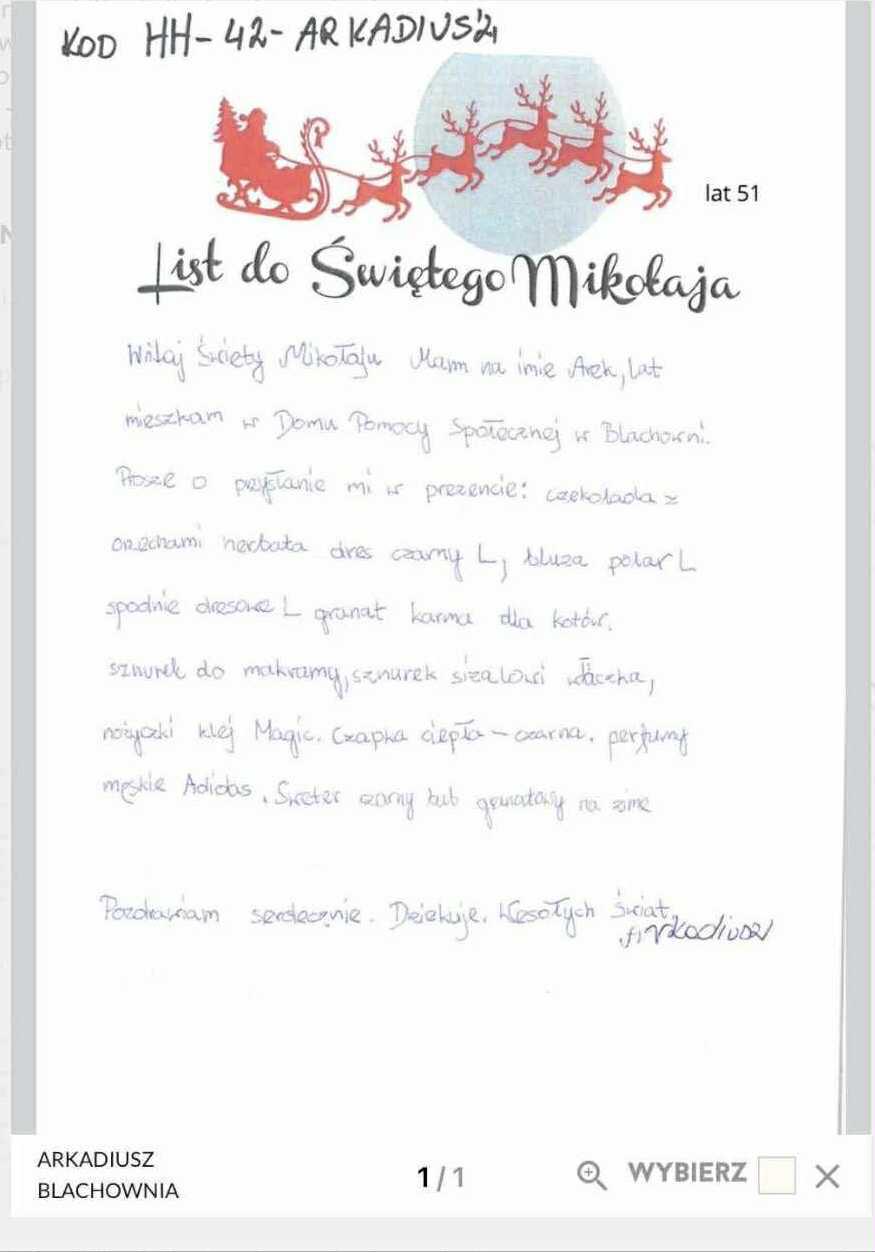 KOD HH-42-ARKADIUSZ
lat 51
List do Świętego Mikołaja
Witaj Święty Mikołaju Mam na imie Arek, lat
mieszkam w Domu Pomocy Społecznej w Blachowni.
Prosze o przysłanie mi w prezencie: czekolada z
orzechami herbata dres czarny L, bluza polar L
spodnie dresowe L granat karma dla kotów.
sznurek do makramy, sznurek sizalowi włóczka,
nożyczki klej Magic. Czapka ciepła - czarna. perfumy
męskie Adidas. Sweter czarny lub granatowy na zime
Pozdrawiam serdecznie. Dziekuje. Wesołych Świat.
Arkadiusz
ARKADIUSZ
BLACHOWNIA
1 / 1
WYBIERZ